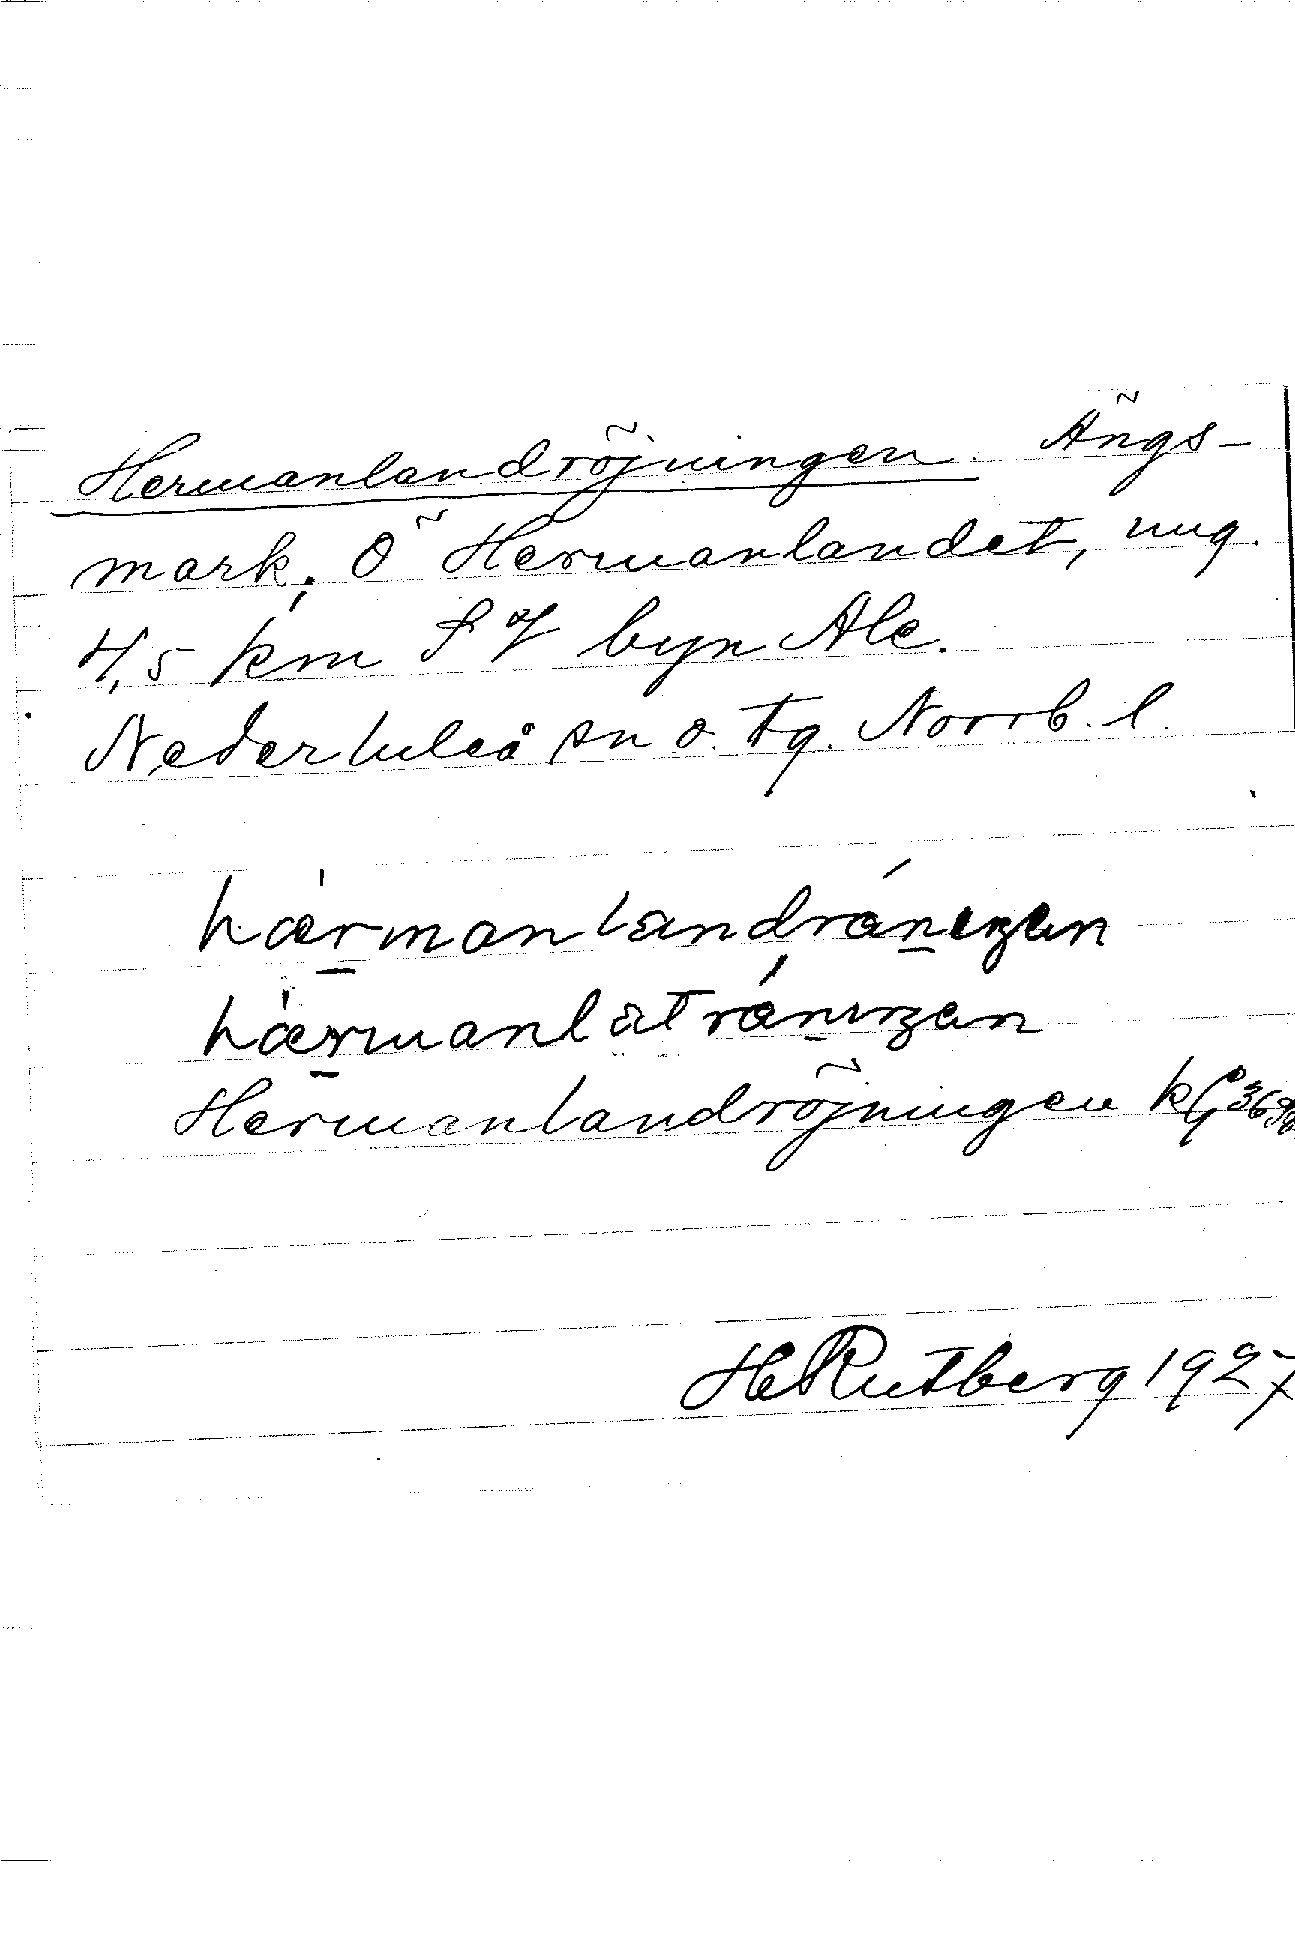 Hermanlandröjningen. Ängs-
mark, Ö Hermanlandet, ung.
4,5 km S om byn Ale.
Nederluleå sn o. tg. Norrb. l.
hærmanlandrǽniŋen
hærmanlatrǽniŋen
Hermanlandröjningen k
HRutberg 1927